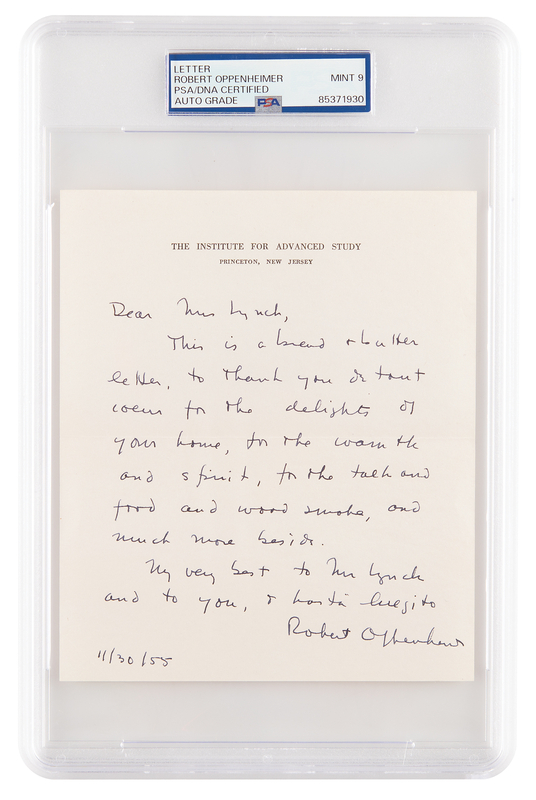 LETTER
ROBERT OPPENHEIMER MINT 9
PSA/DNA CERTIFIED
AUTO GRADE PSA 85371930
THE INSTITUTE FOR ADVANCED STUDY
PRINCETON, NEW JERSEY
Dear Mrs Lynch,
This is a bread & butter
letter, to thank you de tout
coeur for the delights of
your home, for the warmth
and spirit, for the talk and
food and wood smoke, and
much more beside.
My very best to Mr Lynch
and to you, & hasta luegito
Robert Oppenheimer
11/30/55